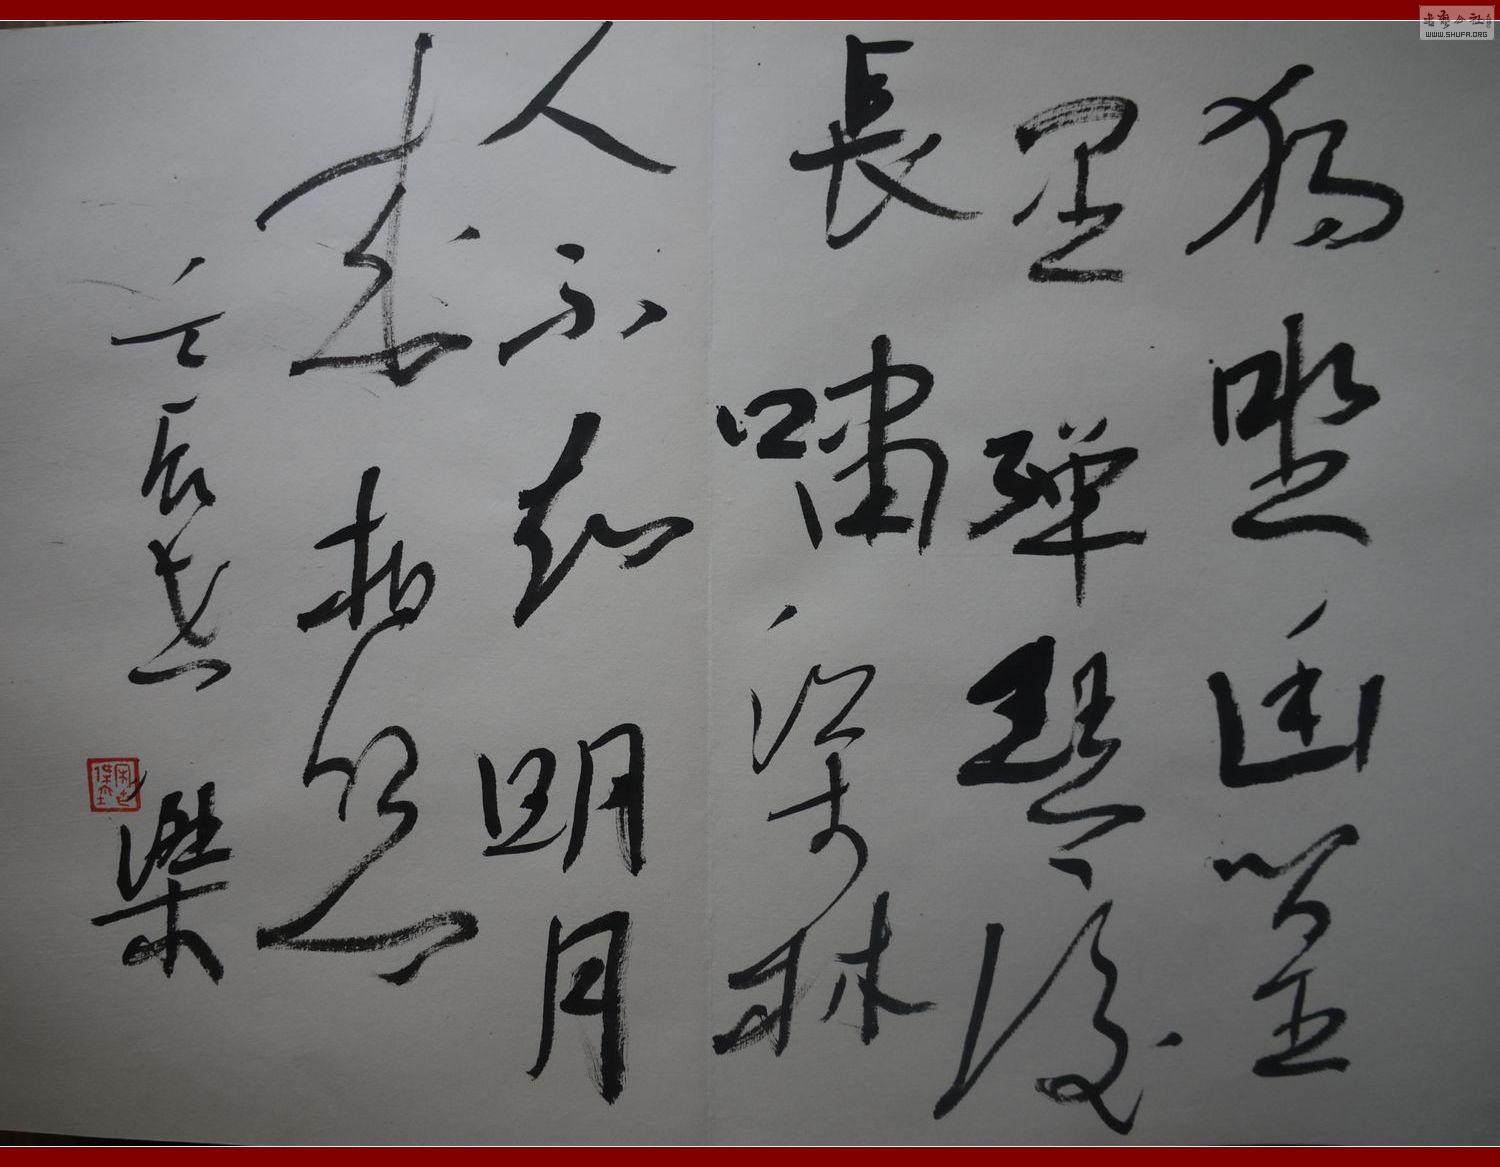 獨坐幽篁
里彈琴復
長嘯深林
人不知明月
來相照
壬辰
書藝公社
WWW.SHUFA.ORG